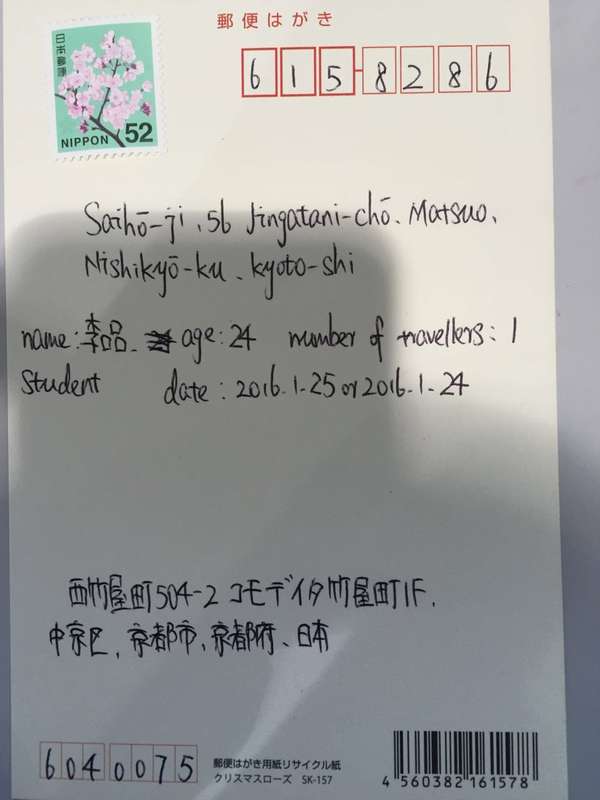 郵便はがき
日本郵便
NIPPON 52
615-8286
Saihō-ji、56 Jingatani-chō、Matsuo、
Nishikyō-ku、kyoto-shi
name:李品、age:24 number of travellers:1
student date:2016.1-25 or 2016.1-24
西竹屋町504-2 コモデイタ竹屋町1F、
中京区、京都市、京都府、日本
6040075
郵便はがき用紙リサイクル紙
クリスマスローズ SK-157
4 560382 161578